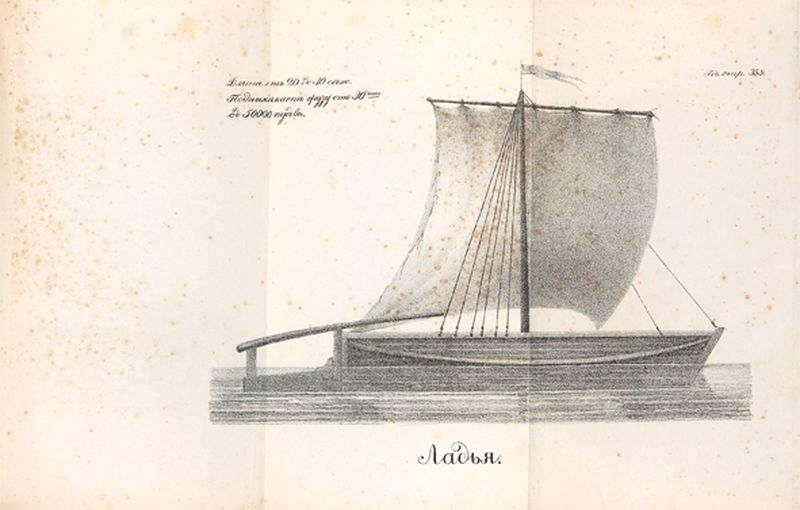 Длина отъ 20 до 30 саж.
Поднимаетъ грузу отъ 30
до 50000 пудовъ.
стр. 353.
Ладья.